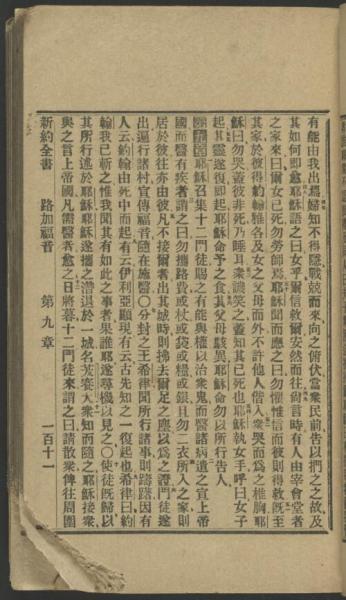 有能由我出焉婦知不得隱戰兢而來向之俯伏當衆民前告以捫之之故及
其如何即愈耶穌語之曰女乎爾信救爾安然而往尙言時有人由宰會堂者
之家來曰爾女已死勿勞師焉耶穌聞而應之曰勿懼惟信而彼則得救旣至
其家於彼得約翰雅各及女之父母而外不許他人偕入衆哭而爲之椎胸耶
穌曰勿哭蓋彼非死乃睡耳衆譏笑之蓋知其已死也耶穌執女手呼曰女子
起其靈遂復即起耶穌命予之食其父母駭異耶穌命勿以所行告人
耶穌召集十二門徒賜之有能與權以治衆鬼而醫諸病遣之宣上帝
國而醫有疾者謂之曰勿攜路費或杖或袋或糧或銀且勿二衣所入之家則
居於彼往亦由彼凡不接爾者出其城時則拂去爾足之塵以爲之證門徒遂
出遍行諸村宣傳福音隨在施醫〇分封之王希律聞所行諸事則躊躇因有
人云約翰由死中而起有云伊利亞顯現有云古先知之一復起也希律曰約
翰我已斬之惟我聞其有如此之事者果誰耶遂尋機以見之〇使徒旣歸以
其所行述於耶穌耶穌遂攜之潛退於一城名
衆知而隨之耶穌接衆
與之言上帝國凡需醫者愈之日將暮十二門徒來謂之曰請散衆俾往周圍
新約全書 路加福音 第九章 一百十一